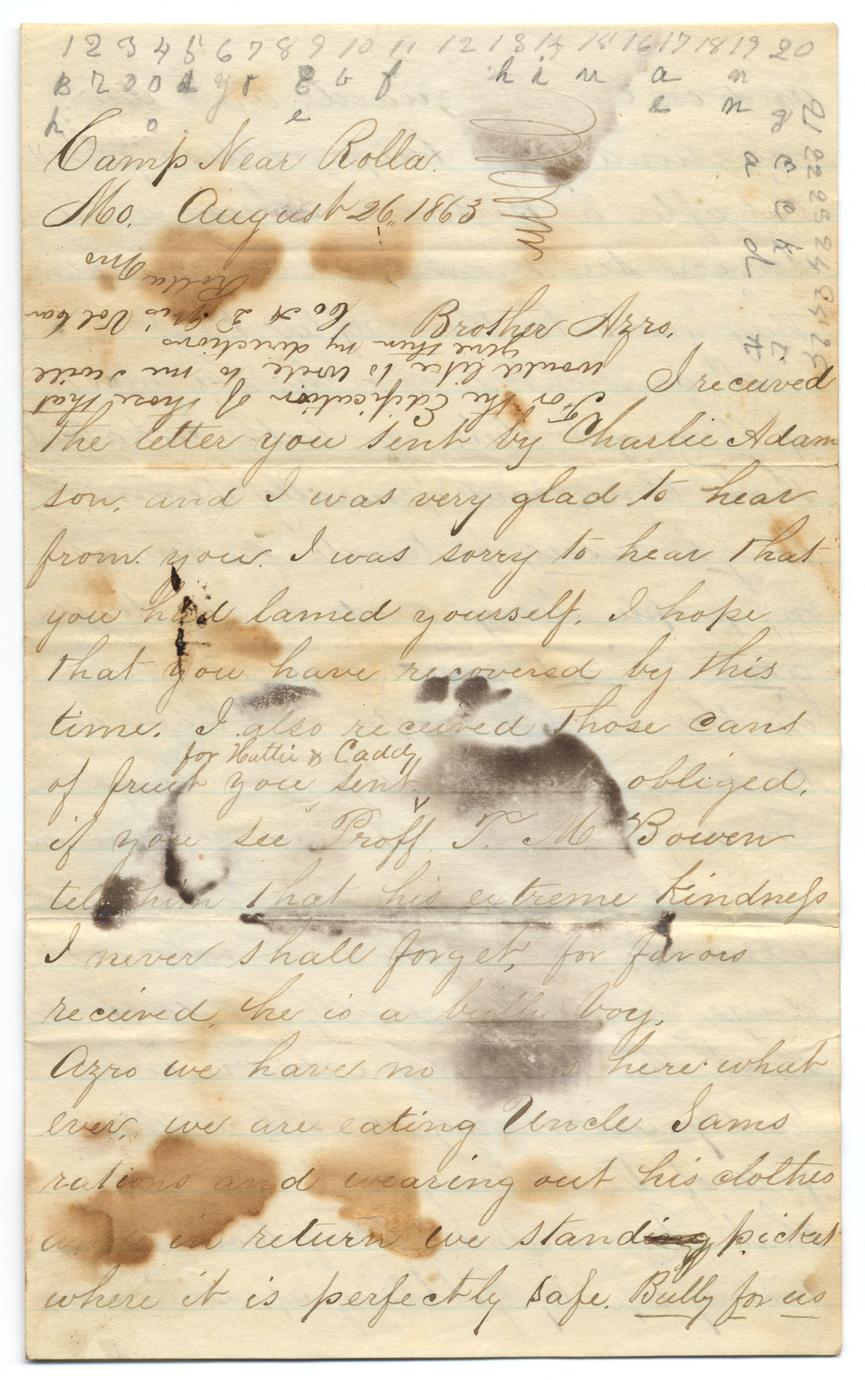 1 2 3 4 5 6 7 8 9 10 11 12 13 14 15 16 17 18 19 20
Camp Near Rolla.
Mo. August 26, 1863
Brother Azro,
I received
the letter you sent by Charlie Adam
son, and I was very glad to hear
from you. I was sorry to hear that
you had lamed yourself, I hope
that you have recovered by this
time. I also received those cans
for Hattie & Caddy
of fruit you sent obliged,
if you see Proff T. M. Bowen
tell him that his extreme kindness
I never shall forget, for favors
received, he is a bully boy.
Azro we have no here what
ever, we are eating Uncle Sams
rations and wearing out his clothes
and in return we standing picket
where it is perfectly safe. Bully for us
For the Edification of those that
would like to write to me I will
give them my directions
Co H 2 Mis Vol
Rolla Mo
21 22 23 24 25 26